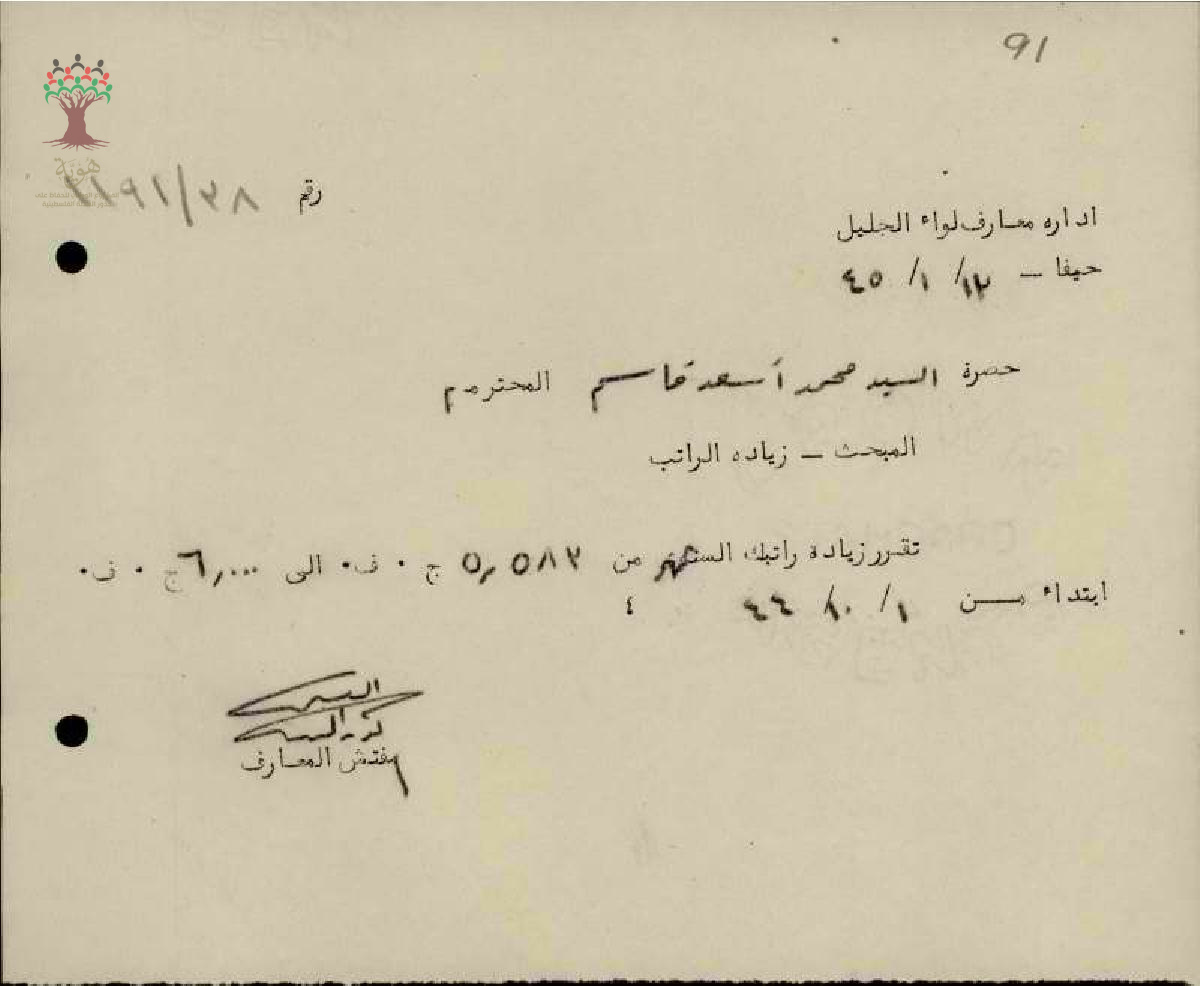 91
رقم ١١٩١/٣٨
اداره معارف لواء الجليل
حيفا – ١٢/ ١/ ٤٥
حضرة السيد محمد أسعد قاسم المحترم
المبحث – زياده الراتب
تقرر زيادة راتبك من ٥,٥٨٣ ج ٠ ف٠ الى ٦,٠٠٠ ج ٠ ف٠
ابتداء مــن ١/ ١٠/ ٤٤
مفتش المعارف
هوية